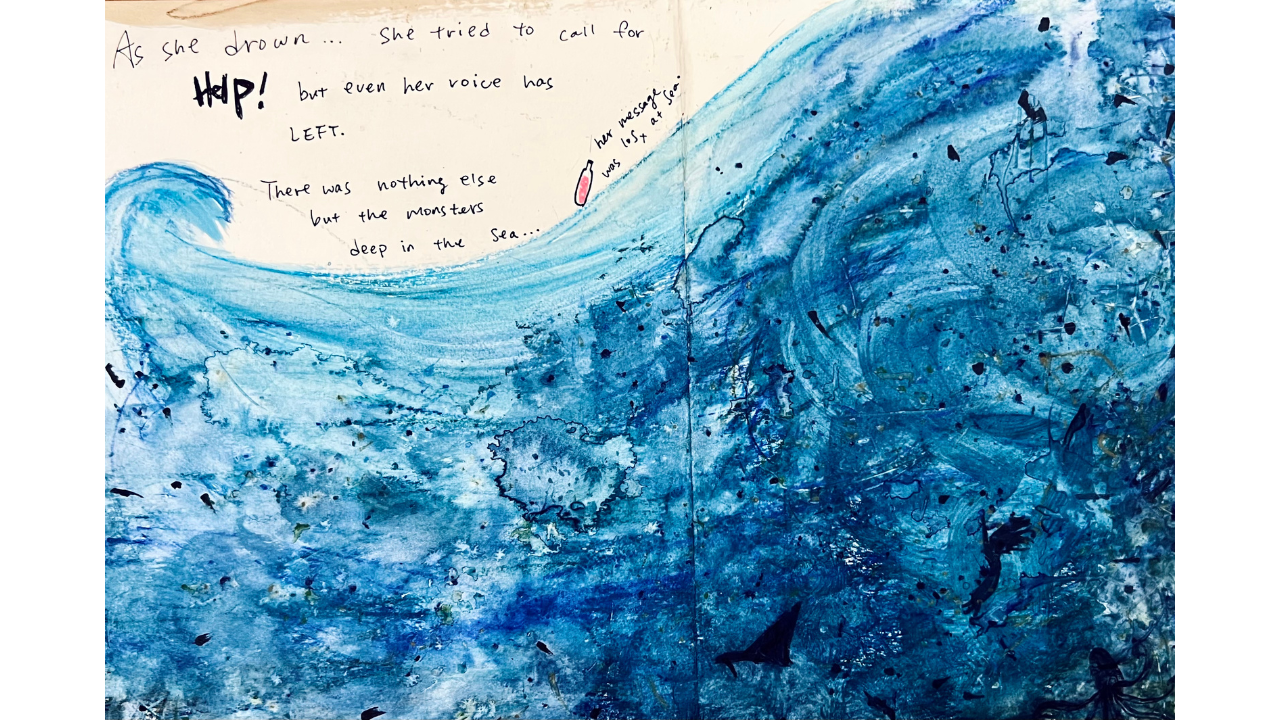 As she drown... She tried to call for
HElp! but even her voice has
LEFT.
her message
was lost at sea.
There was nothing else
but the monsters
deep in the sea...